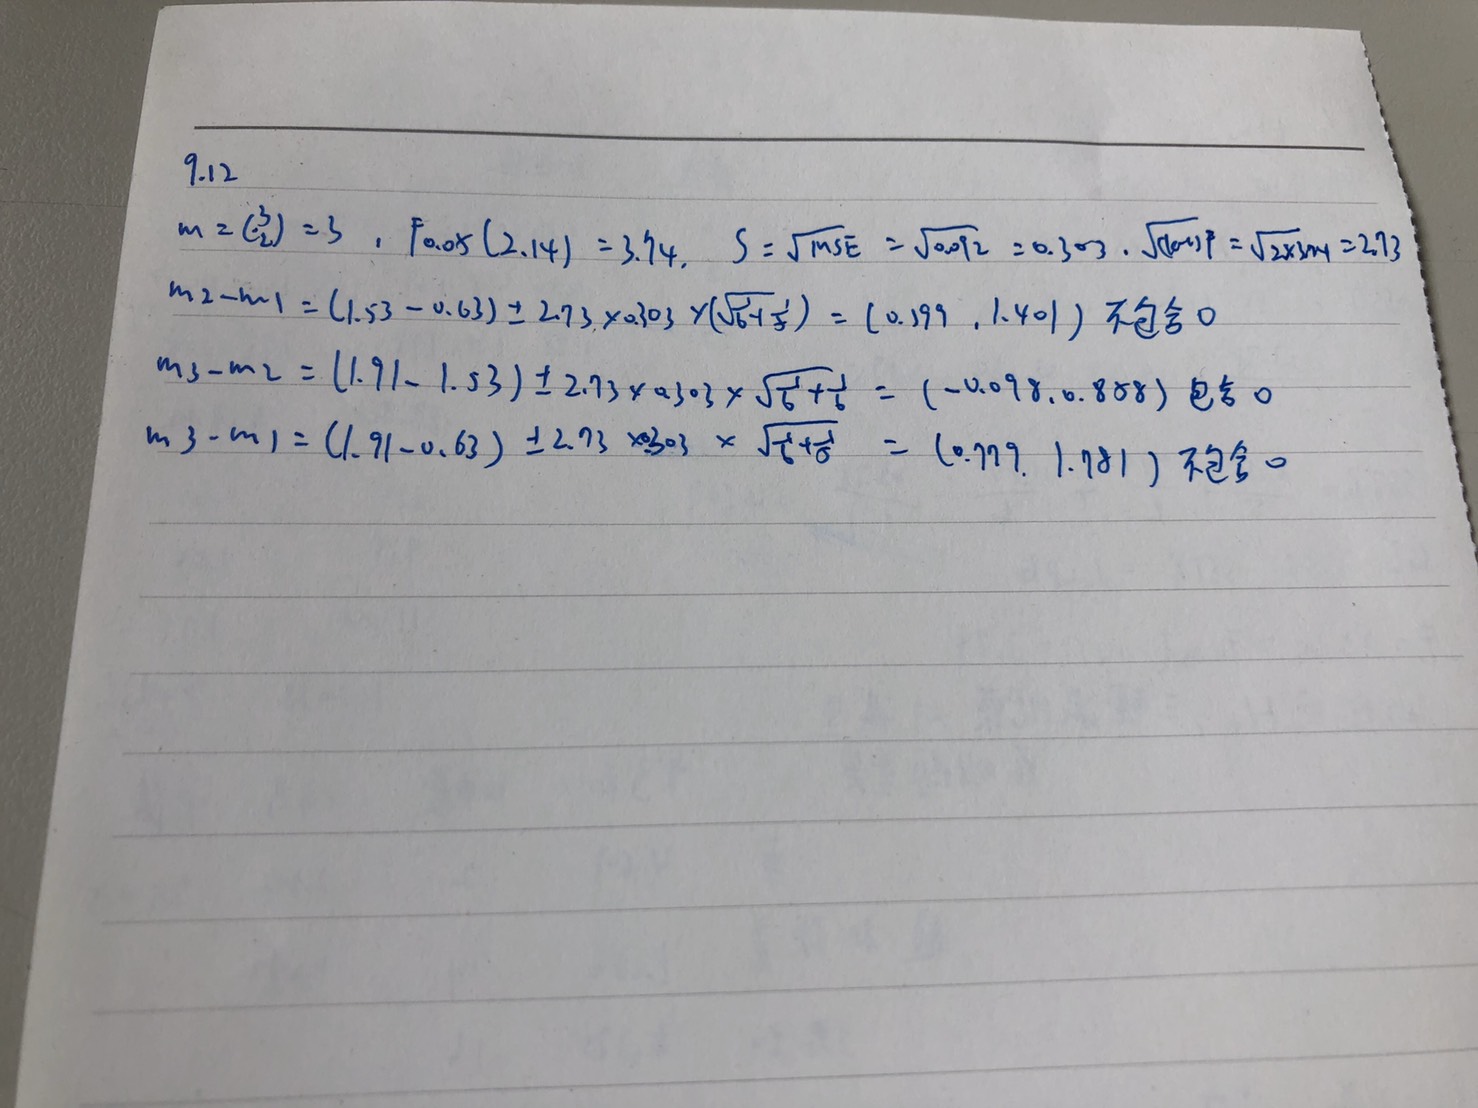 9.12
m = (3 2) = 3 , F0.05 (2.14) = 3.74, S = √MSE = √0.092 = 0.303 . = √2×3.74 = 2.73
m2-m1 = (1.53 - 0.63) ± 2.73 × 0.303 × (√1/6+1/5) = (0.399 , 1.401) 不包含 0
m3-m2 = (1.91 - 1.53) ± 2.73 × 0.303 × √1/6+1/6 = (-0.098, 0.858) 包含 0
m3-m1 = (1.91-0.63) ± 2.73 × 0.303 × √1/6+1/5 = (0.779, 1.781) 不包含 0